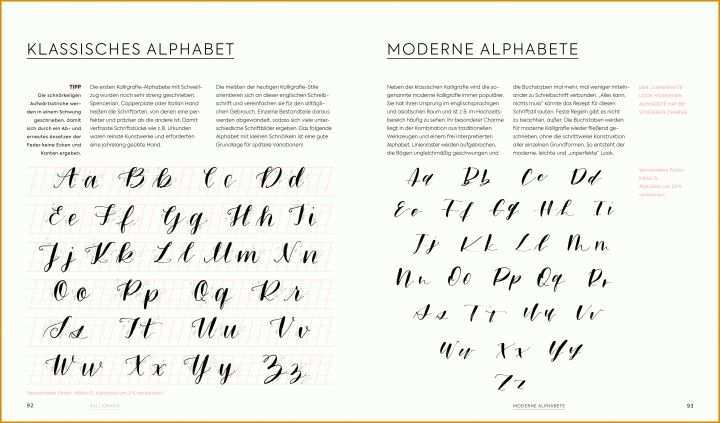 KLASSISCHES ALPHABET
TIPP
Die schnörkeligen
Aufwärtsstriche wer-
den in einem Schwung
geschrieben, damit
sich durch ein Ab- und
erneutes Ansetzen der
Feder keine Ecken und
Kanten ergeben.
Die ersten Kalligrafie-Alphabete mit Schwell-
zug wurden noch sehr streng geschrieben.
Spencerian, Copperplate oder Italian Hand
heißen die Schriftarten, von denen eine per-
fekter und präziser als die andere ist. Damit
verfasste Schriftstücke wie z. B. Urkunden
waren reinste Kunstwerke und erforderten
eine jahrelang geübte Hand.
Die meisten der heutigen Kalligrafie-Stile
orientieren sich an dieser englischen Schreib-
schrift und vereinfachen sie für den alltägli-
chen Gebrauch. Einzelne Bestandteile daraus
werden abgewandelt, sodass sich viele unter-
schiedliche Schriftbilder ergeben. Das folgende
Alphabet mit kleinen Schnörkeln ist eine gute
Grundlage für spätere Variationen!
A a B b C c D d
E e F f G g H h I i
J j K k L l M m N n
O o P p Q q R r
S s T t U u V v
W w X x Y y Z z
92
MODERNE ALPHABETE
Neben der klassischen Kalligrafie wird die so-
genannte moderne Kalligrafie immer populärer.
Sie hat ihren Ursprung im englischsprachigen
und asiatischen Raum und ist z. B. im Hochzeits-
bereich häufig zu sehen. Ihr besonderer Charme
liegt in der Kombination aus traditionellen
Werkzeugen und einem frei interpretierten
Alphabet. Linienraster werden aufgebrochen,
die Bögen ungleichmäßig geschwungen und
die Buchstaben mal mehr, mal weniger mitein-
ander zu Schreibschrift verbunden. „Alles kann,
nichts muss“ könnte das Rezept für diesen
Schriftstil lauten. Feste Regeln gibt es nicht
zu beachten, außer: Die Buchstaben werden
für moderne Kalligrafie wieder fließend ge-
schrieben, ohne die schrittweise Konstruktion
aller einzelnen Grundformen. So entsteht der
moderne, leichte und „unperfekte“ Look.
A a B b C c D d
E e F f G g H h I i
J j K k L l M m
N n O o P p Q q R r
S s T t U u V v
W w X x Y y
Z z
MODERNE ALPHABETE
93